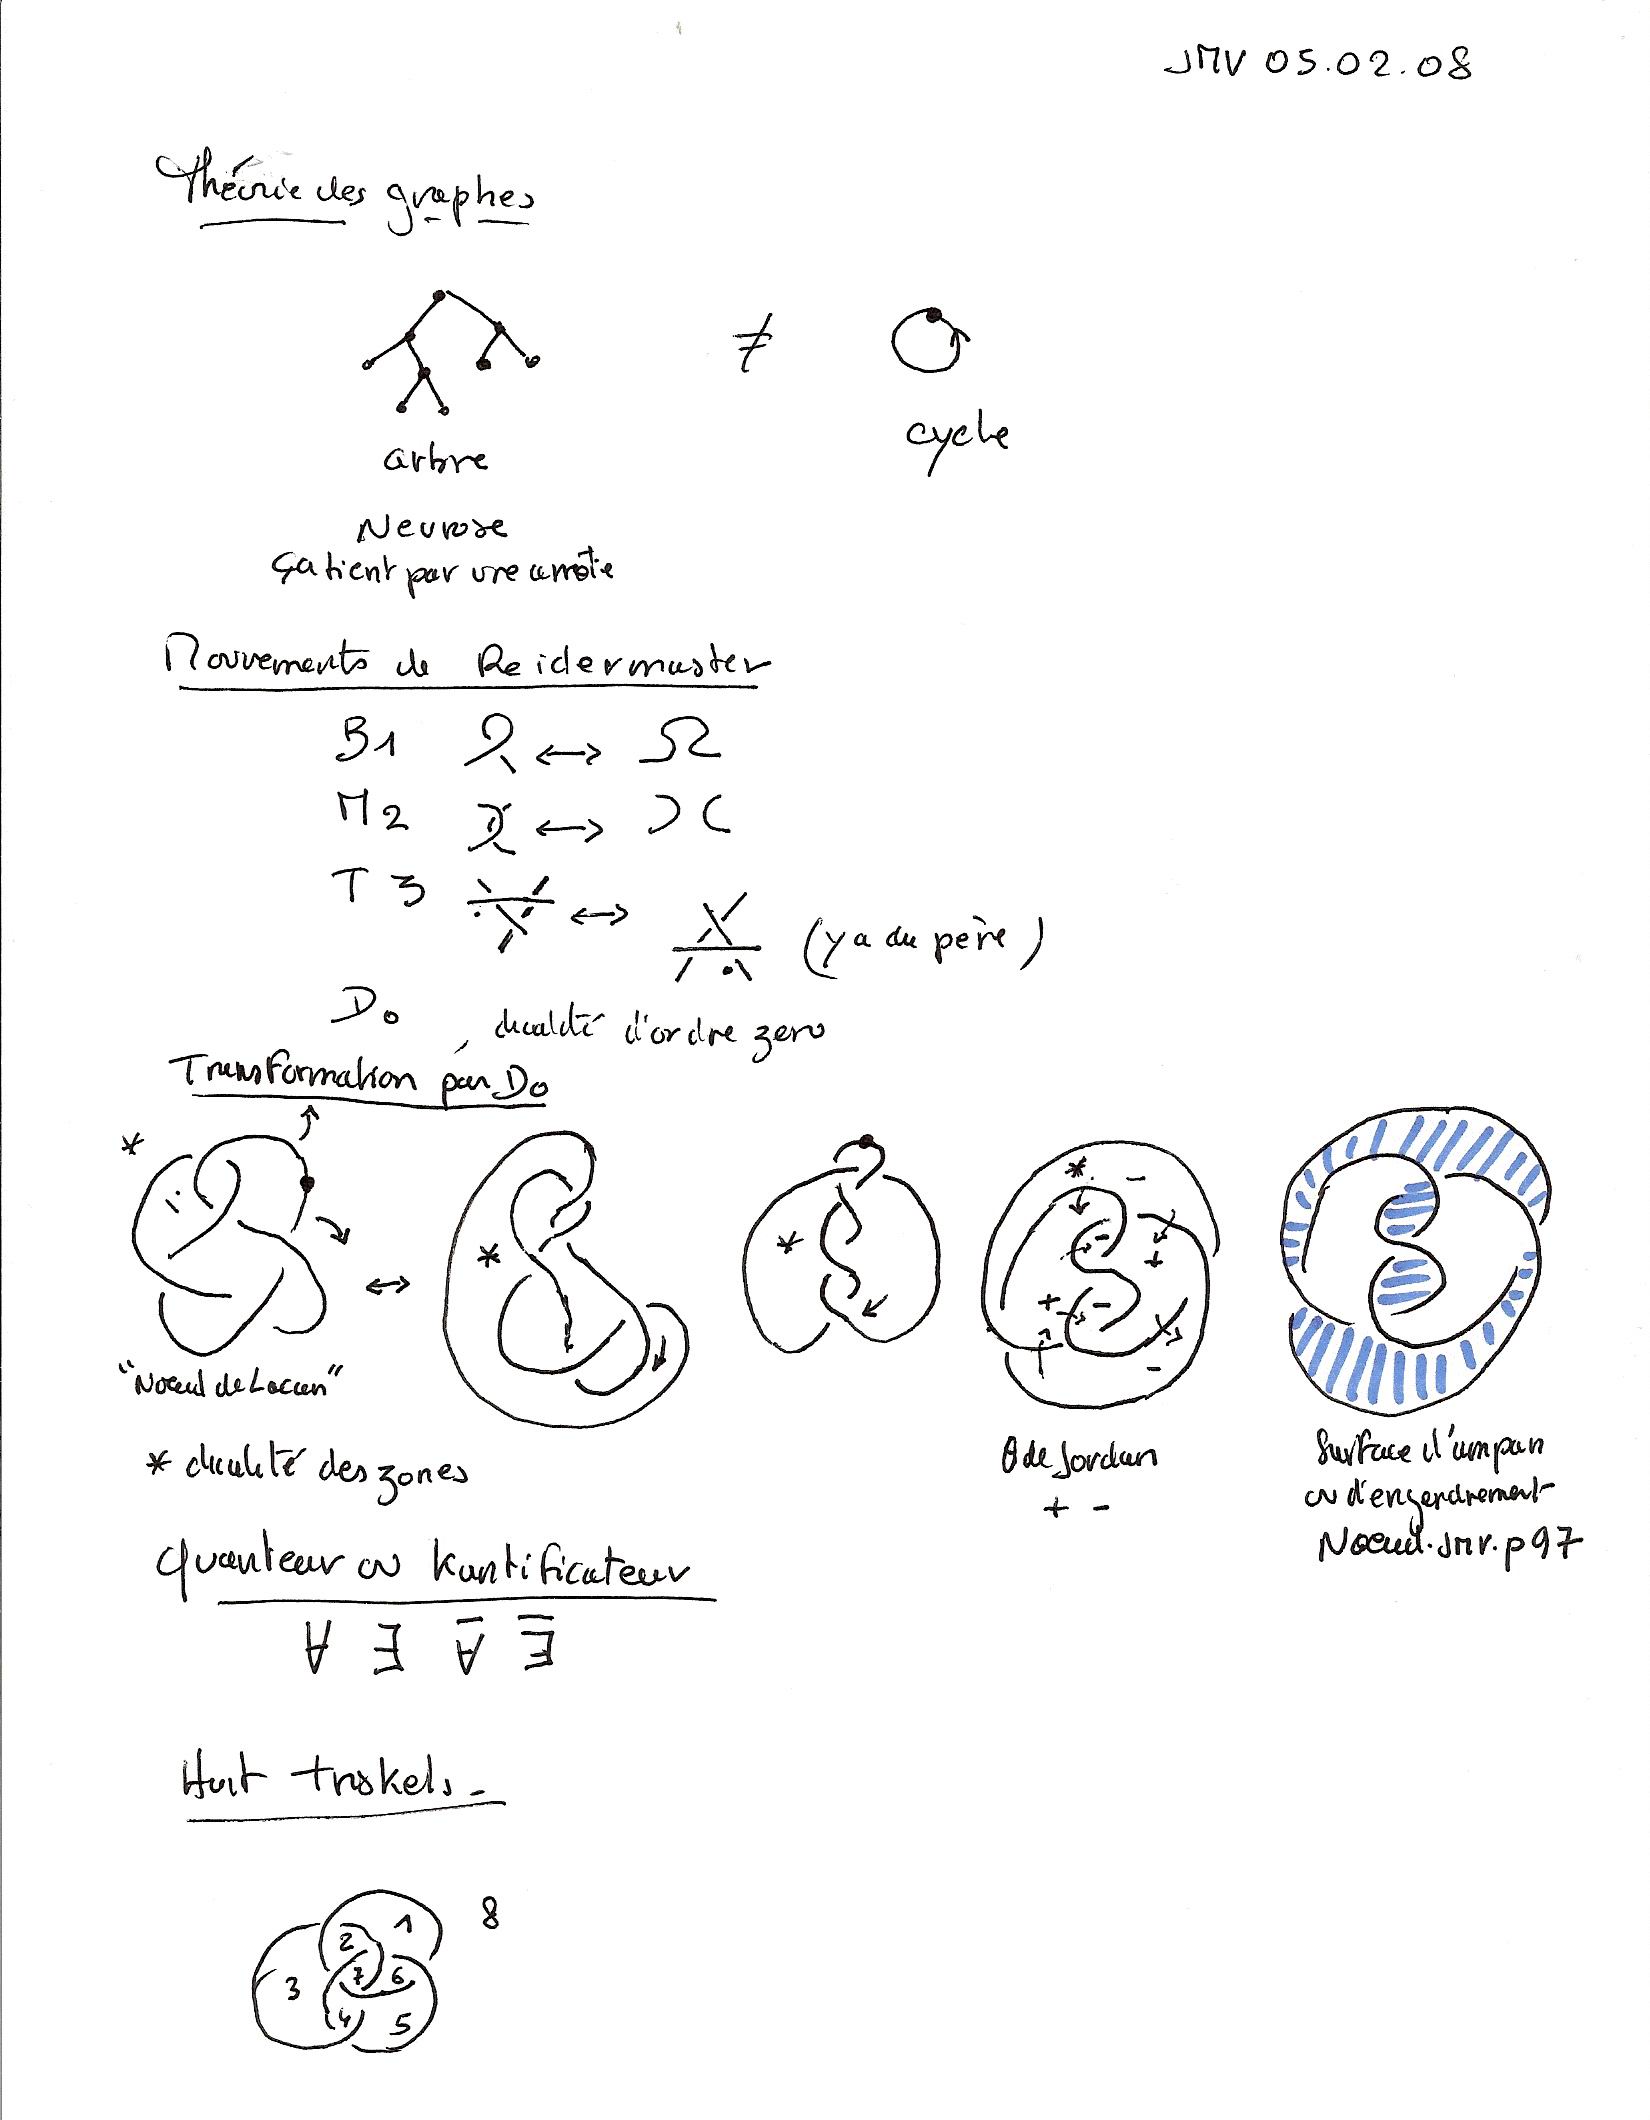 JMV 05.02.08
Théorie des graphes
≠
arbre
cycle
Neurose
ça tient par une arrête
Mouvements de Reidermaster
B1 ↔
M2 ↔
T3 ↔ (y a du père)
Do, dualité d'ordre zero
Transformation par Do
* ↔ * * * - + + - - -
"Nœud de Lacan"
θ de Jordan
+ -
Surface d'empan
ou d'engendrement
Nœud.JMV.p97
* dualité des zones
Quanteur ou Kantificateur
∀ ∃ ∀̅ ∃̅
Huit triskels -
1 8
2
3 7 6
4 5